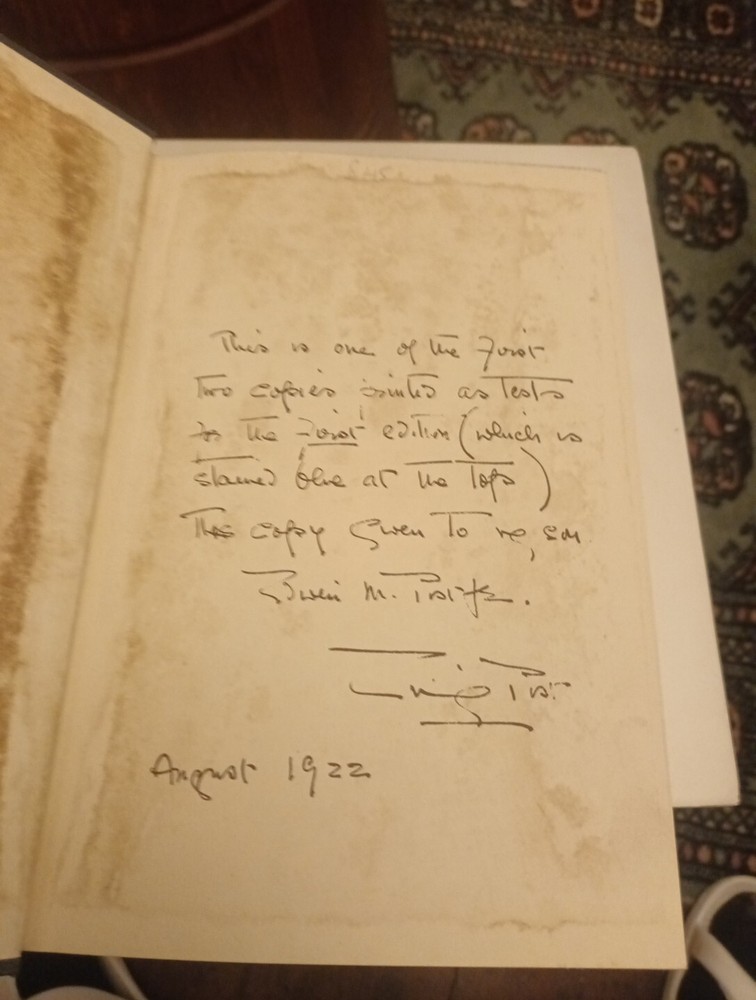 This is one of the First
Two copies printed as Tests
for The First edition (which is
stained blue at The Tops)
This copy given To my son
Edwin M. Post Jr.
Emily Post
August 1922